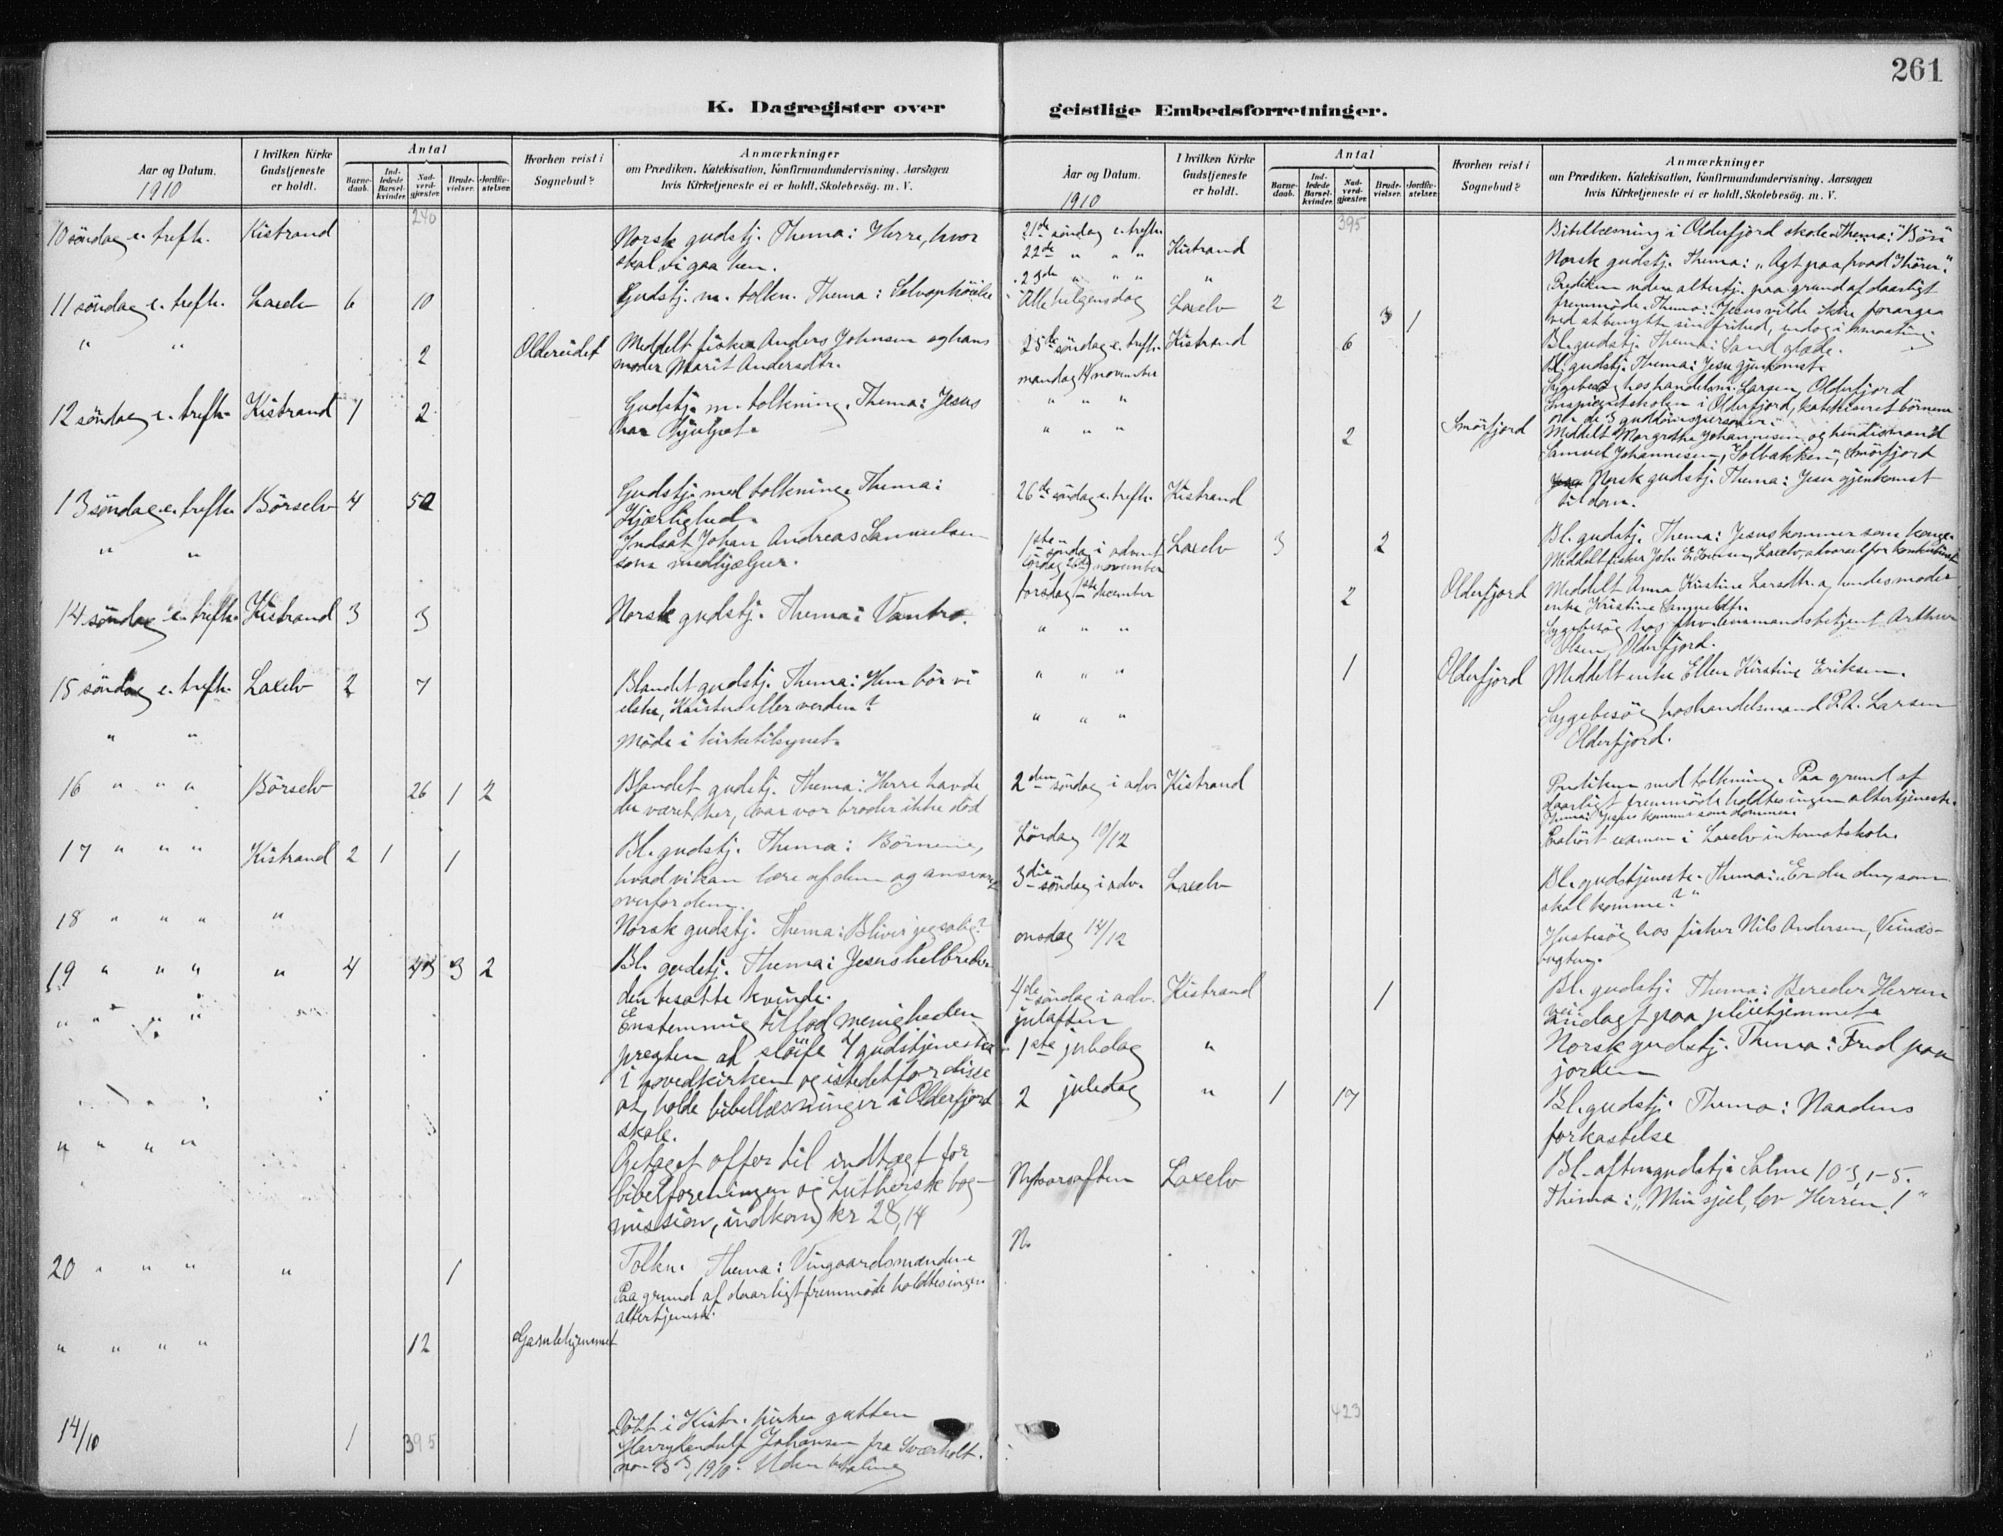 261
K. Dagregister over
geistlige Embedsforretninger.
Aar og Datum.
1910
I hvilken Kirke
Gudstjeneste
er holdt.
Antal
Barne-
daab.
Ind-
ledede
Barsel-
kvinder.
Nad-
verd-
gjæster.
Brude-
vielser.
Jordfæ-
stelser.
Hvorhen reist i
Sognebud?
Anmærkninger
om Prædiken, Katekisation, Konfirmandundervisning, Aarsagen
hvis Kirketjeneste ei er holdt, Skolebesøg. m. V.
240
10 søndag e. trefh. Kistrand Norsk gudstj. Thema: Herre, hvor
skal vi gaa hen.
11 søndag e. trefh. Laxelv 6 10 Gudstj. m. tolkn. Thema: Selvophøielse
" " 2 Oldereidet Meddelt fisker Anders Johnsen og hans
moder Marit Andersdtr.
12 søndag e. trefh. Kistrand 1 2 Gudstj. m. tolkning. Thema: Jesus
har hjulpet.
13 søndag e. trefh. Børselv 4 50 Gudstj. med tolkning. Thema:
Kjærlighed.
" " Indsat Johan Andreas Samuelsen
som medhjælper.
14 søndag e. trefh. Kistrand 3 3 Norsk gudstj. Thema: Vantro.
15 søndag e. trefh. Laxelv 2 7 Blandet gudstj. Thema: Hvem bør vi
elske, Kristus eller verden?
" " Møde i kirketilsynet.
16 " " " Børselv 26 1 2 Blandet gudstj. Thema: Herre havde
du været her, var vor broder ikke død
17 " " " Kistrand 2 1 1 Bl. gudstj. Thema: Børnene,
hvad vi kan lære af dem og ansvaret
overfor dem.
18 " " " " Norsk gudstj. Thema: Bliver jeg salig?
19 " " " " 4 43 3 2 Bl. gudstj. Thema: Jesus helbreder
den besatte kvinde.
" " " " Enstemmig tillod menigheden
presten at sløife 4 gudstjenester
i hovedkirken og istedetfor disse
at holde bibellæsninger i Olderfjord
skole.
" " " " Optaget offer til indtægt for
bibelforeningen og Luthersk bog-
mission, indkom kr 28,14
20 " " " " 1 Tolkn. Thema: Vingaardsmændene
Paa grund af daarligt fremmøde holdtes ingen
altertjeneste.
" " " " 12 Gamlehjemmet
14/10 1 395 Døbt i Kistr. kirke gutten
Harry Randulf Johansen fra Sværholt.
1910. Uden betaling
Aar og Datum.
1910
I hvilken Kirke
Gudstjeneste
er holdt.
Antal
Barne-
daab.
Ind-
ledede
Barsel-
kvinder.
Nad-
verd-
gjæster.
Brude-
vielser.
Jordfæ-
stelser.
Hvorhen reist i
Sognebud?
Anmærkninger
om Prædiken, Katekisation, Konfirmandundervisning, Aarsagen
hvis Kirketjeneste ei er holdt, Skolebesøg. m. V.
395
21de søndag e. trefh. Bibellæsning i Olderfjord skole. Thema: "Bøn"
22de " " " Kistrand Norsk gudstj. Thema: "Agt paa hvad I hører."
23de " " " " Prediken uden altertj. paa grund af daarligt
fremmøde. Thema: Jesus vilde ikke forarge
ved at benytte sin frihed,
Allehelgensdag Laxelv 2 3 1 Bl. gudstj. Thema: Sand glæde.
25de søndag e. trefh. Kistrand 6 Bl. gudstj. Thema: Jesu gjenkomst.
mandag 14 november Sygebesøg hos handelsm. Larsen, Olderfjord
" " " Inspiceret skolen i Olderfjord, katekiseret børnene
om de 3 guddomspersoner.
" " " 2 Smørfjord Meddelt Margrethe Johannesen og hendes mand
Samuel Johannesen, "Solbakken", Smørfjord
26de søndag e. trefh. Kistrand Norsk gudstj. Thema: Jesu gjenkomst
til dom.
1ste søndag i advent Laxelv 3 2 Bl. gudstj. Thema: Jesus kommer som konge.
lørdag 26de november Meddelt fisker Laxelv, advarsel for konkubinat
torsdag 1ste december 2 Olderfjord Meddelt Anna Kristine Larsdtr. og hendes moder
enke Kristine
" " " Sygebesøg hos fhv. lensmandsbetjent Arthur
Olsen, Olderfjord.
" " " 1 Olderfjord Meddelt enke Ellen Kirstine Eriksen.
" " " Sygebesøg hos handelsmand P. A. Larsen
Olderfjord.
2den søndag i adv. Kistrand Prediken med tolkning. Paa grund af
daarligt fremmøde holdtes ingen altertjeneste.
Thema: Jesus kommer som dommer.
Lørdag 10/12 Bahørt examen i Laxelv internatskole.
3die søndag i adv. Laxelv Bl. gudstjeneste. Thema: "Er du den, som
skal komme?"
onsdag 14/12 Husbesøg hos fisker Nils Andersen,
bugten.
4de søndag i adv. Kistrand 1 Bl. gudstj. Thema: Bereder Herren
vei
julaften andagt paa pleiehjemmet.
1ste juledag " Norsk gudstj. Thema: Fred paa
jorden
2 juledag " 1 17 Bl. gudstj. Thema: Naadens
forkastelse
Nytaarsaften Laxelv Bl. aftengudstj. Salme 103, 1-5.
Thema: "Min sjæl, lov Herren!"
N.
423